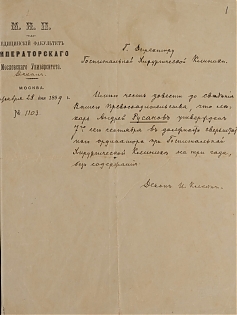 М. Н. П.
МЕДИЦИНСКІЙ ФАКУЛЬТЕТЪ
ИМПЕРАТОРСКАГО
Московскаго Университета.
Деканъ
МОСКВА
28 дня 189 г.
№ 1103
Г. Директору
Госпитальной Хирургической Клиники.
Имѣю честь довести до свѣдѣнія
Вашего Превосходительства, что ле-
карь Андрей Русаковъ утвержденъ
7го сего сентября въ должности сверхштат-
наго ординатора при Госпитальной
Хирургической Клиникѣ на три года,
безъ содержанія
Деканъ И. Клейнъ